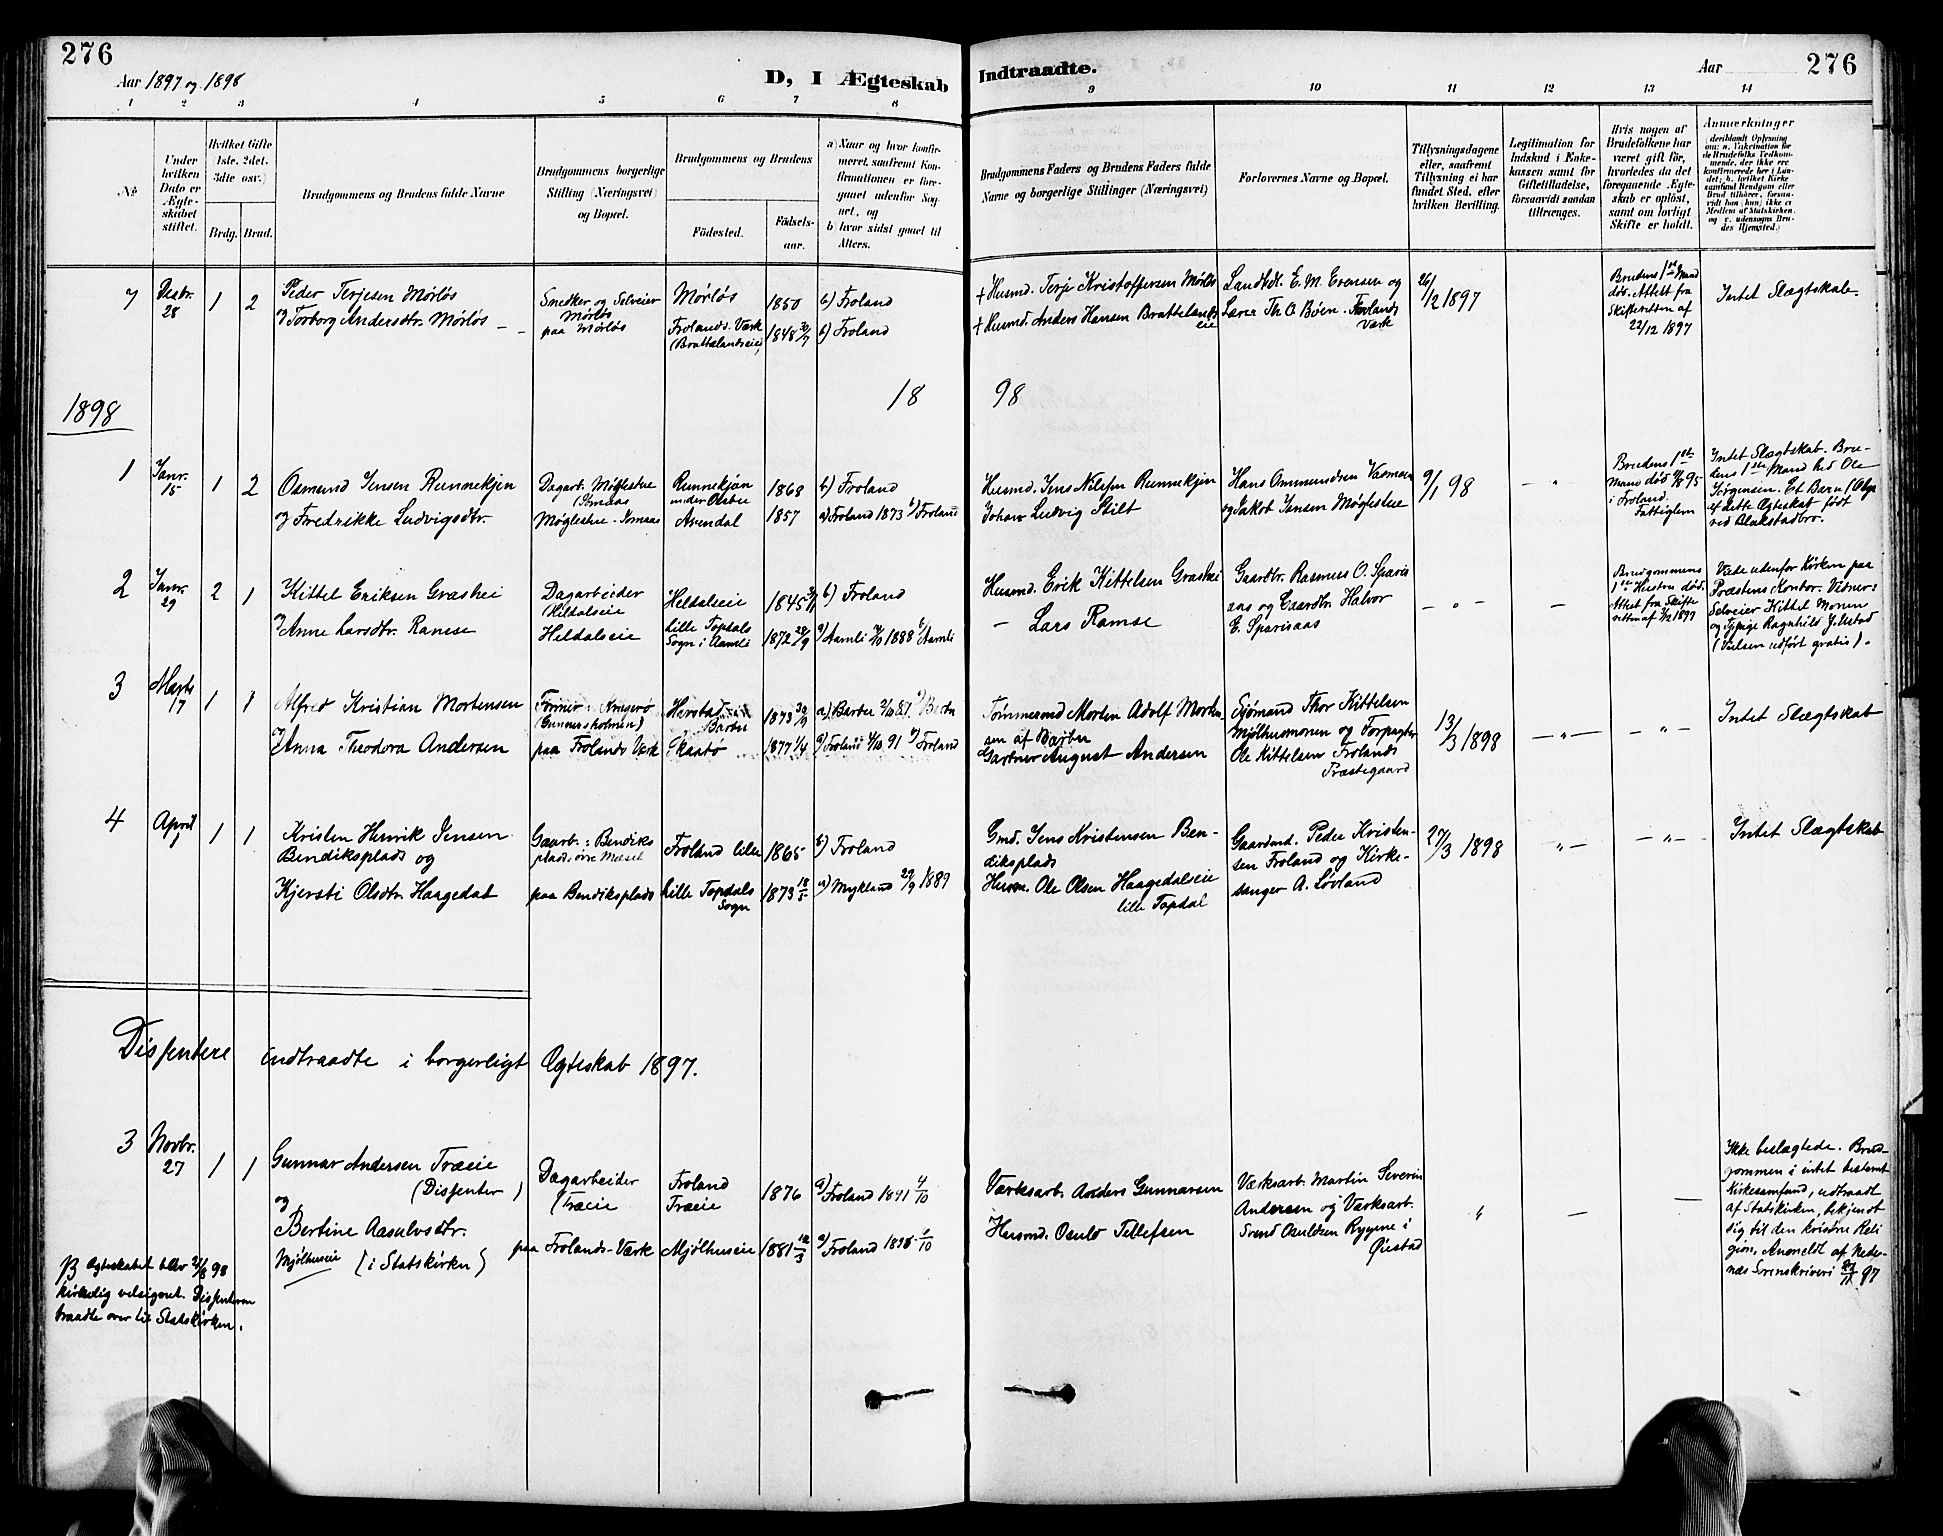 276
Aar 1897 og 1898
D, I Ægteskab
Indtraadte.
Aar
276
1 2 3 4 5 6 7 8 9 10 11 12 13 14
No
Under hvilken Dato er Ægteskabet stiftet.
Hvilket Gifte (1ste, 2det, 3dte osv.)
Brdg. Brud.
Brudgommens og Brudens fulde Navne
Brudgommens borgerlige Stilling (Næringsvei) og Bopæl.
Brudgommens og Brudens
Födested.
Födselsaar.
a) Naar og hvor konfirmeret, saafremt Konfirmationen er foregaaet udenfor Sognet, og
b) hvor sidst gaaet til Alters.
Brudgommens Faders og Brudens Faders fulde Navne og borgerlige Stillinger (Næringsvei)
Forlovernes Navne og Bopæl.
Tillysningsdagene eller, saafremt Tillysning ei har fundet Sted, efter hvilken Bevilling.
Legitimation for Indskud i Enkekassen samt for Giftetilladelse, forsaavidt saadan tiltrænges.
Hvis nogen af Brudefolkene har været gift før, hvorledes da det foregaaende Ægteskab er oplöst, samt om lovligt Skifte er holdt.
Anmærkninger
(deriblandt Oplysning om: a. Vakcination for de Brudefolks Vedkommende, der ikke ere konfirmerede her i Landet; b. hvilket Kirkesamfund Brudgom eller Brud tilhører, forsaavidt han (hun) ikke er Medlem af Statskirken, og c. udensogns Brudes Hjemsted.)
7 Decbr. 28 1 2
Peder Terjesen Mörlös
og Torborg Andersdtr. Mörlös
Snedker og Selveier
Mörlös
paa Mörlös
Mörlös 1850 b) Froland
Frolands Værk (Brattelandseie) 1848 30/7 b) Froland
+ Husmd. Terje Kristoffersen Mörlös
+ Husmd. Anders Hansen Brattelandseie
Landhdl. E. M. Evensen og
Lærer Th. O. Böen. Frolands Værk
26/12 1897
Brudens 1ste Mand död. Attest fra Skifteretten af 22/12 1897
Intet Slægtskab.
1898
18 98
1 Janr. 15 1 2
Osmund Jensen Runnekjen
og Fredrikke Ludvigsdtr.
Dagarb. Möglestue
Möglestue
Runnekjøn under Osebø 1868 b) Froland
Arendal 1857 a) Froland 1873 b) Froland
Husmd. Jens Nilsen Runnekjen
Johan Ludvig Skilt
Hans Ommundsen
og Jakob Jensen Möglestue
9/1 98
Brudens 1ste Mand död 95 i Froland. Fattiglem
Intet Slægtskab. Brudens 1ste Mand hed Ole Jörgensen. Et Barn af dette Ægteskab födt ved Blakstadbro.
2 Janr. 29 2 1
Kittel Eriksen Græshei
og Anne Larsdtr. Ramse
Dagarbeider
(Heldalseie
Heldalseie
Heldalseie 1845 b) Froland
Lille Topdals Sogn i Aamli 1872 28/9 a) Aamli 1888 b) Aamli
Husmd. Erik Kittelsen Græshei
— Lars Ramse
Gaardbr. Rasmus O. Sparis
aas og Gaardbr. Halvor
E. Sparisaas
Brudgommens 1ste Hustru död. Attest fra Skifteretten af 1897
Viede udenfor Kirken paa
Præstens Kontor. Vidner:
Selveier Kittel Monen
og Typige Ragnhild
(Vielsen udført gratis).
3 Marts 17 1 1
Alfred Kristian Mortensen
og Anna Theodora Andersen
Former: Kragerø
(Gunnarsholmen)
paa Frolands Værk
Herstad Barbu 1873 a) Barbu 87. b) Barbu
Skaatø 1877 1/4 a) Froland 91 b) Froland
Tömmermd Morten Adolf Mortensen af Barbu
Gartner August Andersen
Sjömand Thor Kittelsen
Mjølhusmonen og Forpagter
Ole Kittelsen Frolands
Præstegaard
13/3 1898
Intet Slægtskab
4 April 1 1 1
Kristen Henrik Jensen
Bendiksplads og
Kjersti Olsdtr. Haagedal
Gaarb.: Bendiksplads, øvre Mæsel
paa Bendiksplads
Froland lille 1865 b) Froland
Lille Topdals Sogn 1873 18/5 a) Mykland 29/9 1889
Gmd. Jens Kristensen Ben-
diksplads
Husm. Ole Olsen Haagedalseie
lille Topdal
Gaardmd. Peder Kristen-
sen Froland og Kirke-
sanger A. Lövland
27/3 1898
Intet Slægtskab
Dissentere indtraadte i borgerligt Ægteskab 1897.
3 Novbr. 27 1 1
Gunnar Andersen Træeie
(Dissenter)
og
Bertine Aasulvsdtr.
Mjølhuseie (i Statskirken)
Dagarbeider
(Træeie
paa Frolands-Værk
Froland
Træeie 1876 a) Froland 1891 4/10
Mjølhuseie 1881 12/3 a) Froland 1896 /10
Værksarb. Anders Gunnarsen
Husmd. Osulv Tellefsen
Værksarb. Martin Severin
Andersen og Værksarb.
Svend Osuldsen Rygene i
Øiestad
Ikke beslægtede. Brud-
gommen i intet bestemt
Kirkesamfund, udtraadt
af Statskirken, bekjendt
sig til den kristne Reli
gion, Anmeldt af Nede-
næs Sorenskriveri 27/11 97
Ægteskabet blev 98
kirkelig velsignet. Dissenteren
traadte over til Statskirken.